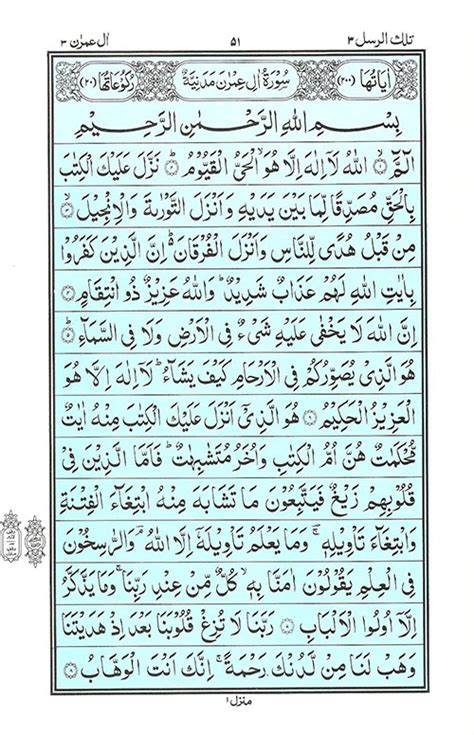 تلك الرسل ٣ ٥١ اٰل عمرٰن ٣
اٰيَاتُهَا (٢٠٠) سُوۡرَةُ اٰلِ عِمۡرٰنَ مَدَنِيَّةٌ رُكُوۡعَاتُهَا (٢٠)
بِسۡمِ اللّٰهِ الرَّحۡمٰنِ الرَّحِيۡمِ
الٓمّٓ ۙ‏﴿۱﴾ اللّٰهُ لَاۤ اِلٰهَ اِلَّا هُوَ ۙ الۡحَىُّ الۡقَيُّوۡمُ ؕ‏﴿۲﴾ نَزَّلَ عَلَيۡكَ الۡكِتٰبَ
بِالۡحَقِّ مُصَدِّقًا لِّمَا بَيۡنَ يَدَيۡهِ وَاَنۡزَلَ التَّوۡرٰٮةَ وَالۡاِنۡجِيۡلَ ۙ‏﴿۳﴾
مِنۡ قَبۡلُ هُدًى لِّلنَّاسِ وَاَنۡزَلَ الۡفُرۡقَانَ ؕ اِنَّ الَّذِيۡنَ كَفَرُوۡا
بِاٰيٰتِ اللّٰهِ لَهُمۡ عَذَابٌ شَدِيۡدٌ ؕ وَاللّٰهُ عَزِيۡزٌ ذُو انۡتِقَامٍ ؕ‏﴿۴﴾
اِنَّ اللّٰهَ لَا يَخۡفٰى عَلَيۡهِ شَىۡءٌ فِى الۡاَرۡضِ وَلَا فِى السَّمَآءِ ؕ‏﴿۵﴾
هُوَ الَّذِىۡ يُصَوِّرُكُمۡ فِى الۡاَرۡحَامِ كَيۡفَ يَشَآءُ ؕ لَاۤ اِلٰهَ اِلَّا هُوَ
الۡعَزِيۡزُ الۡحَكِيۡمُ ‏﴿۶﴾ هُوَ الَّذِىۡۤ اَنۡزَلَ عَلَيۡكَ الۡكِتٰبَ مِنۡهُ اٰيٰتٌ
مُّحۡكَمٰتٌ هُنَّ اُمُّ الۡكِتٰبِ وَاُخَرُ مُتَشٰبِهٰتٌ ؕ فَاَمَّا الَّذِيۡنَ فِىۡ
قُلُوۡبِهِمۡ زَيۡغٌ فَيَتَّبِعُوۡنَ مَا تَشَابَهَ مِنۡهُ ابۡتِغَآءَ الۡفِتۡنَةِ
وَابۡتِغَآءَ تَاۡوِيۡلِهٖ ۚ وَمَا يَعۡلَمُ تَاۡوِيۡلَهٗۤ اِلَّا اللّٰهُ ۘ وَالرّٰسِخُوۡنَ
فِى الۡعِلۡمِ يَقُوۡلُوۡنَ اٰمَنَّا بِهٖ ۙ كُلٌّ مِّنۡ عِنۡدِ رَبِّنَا ۚ وَمَا يَذَّكَّرُ
اِلَّاۤ اُولُوا الۡاَلۡبَابِ ‏﴿۷﴾ رَبَّنَا لَا تُزِغۡ قُلُوۡبَنَا بَعۡدَ اِذۡ هَدَيۡتَنَا
وَهَبۡ لَنَا مِنۡ لَّدُنۡكَ رَحۡمَةً ۚ اِنَّكَ اَنۡتَ الۡوَهَّابُ ‏﴿۸﴾
منزل ۱